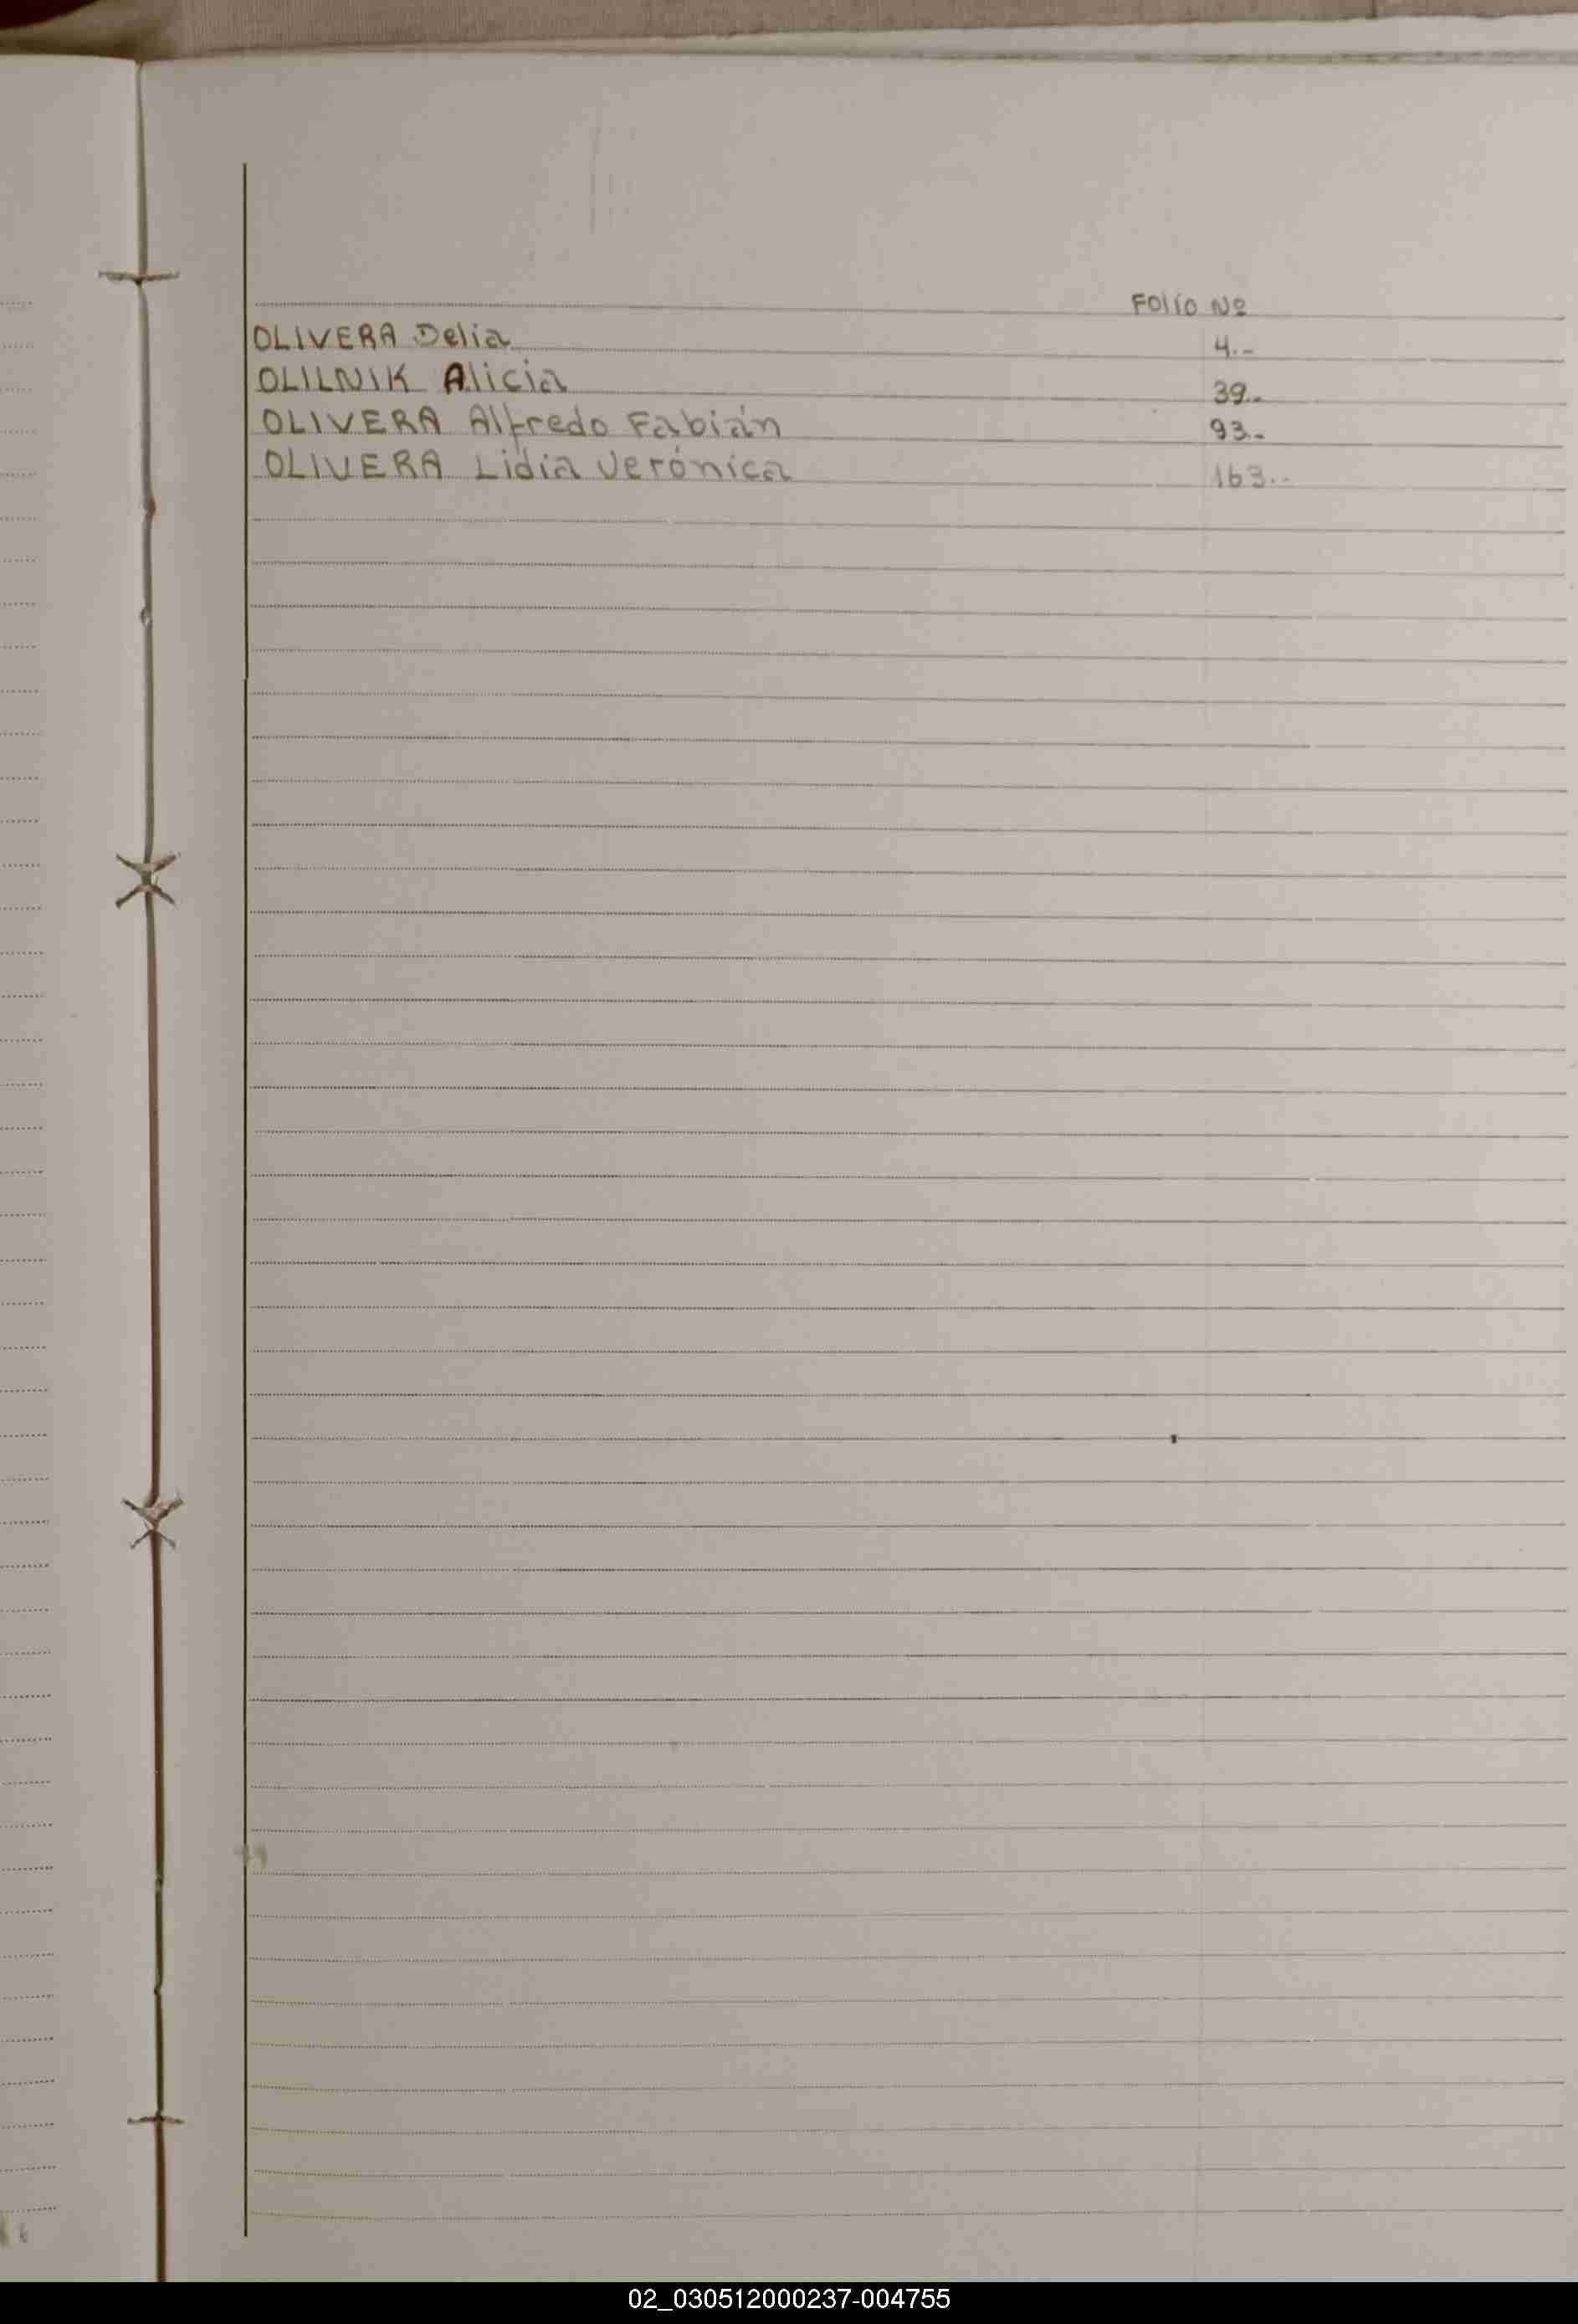 Folio Nº
OLIVERA Delia 4.-
OLILNIK Alicia 39.-
OLIVERA Alfredo Fabián 93.-
OLIVERA Lidia Verónica 163.-
02_030512000237-004755